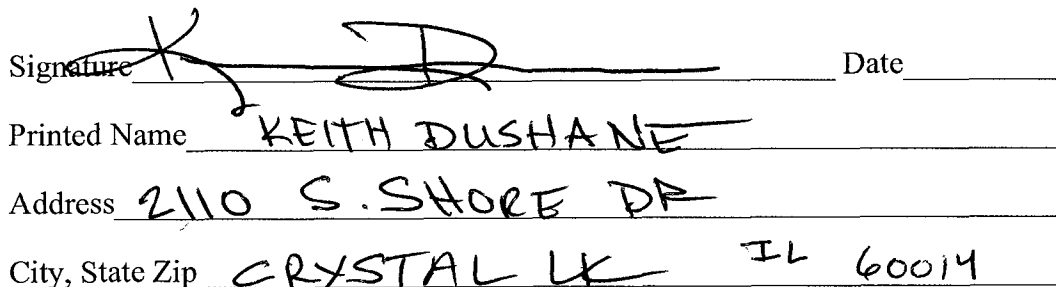 Signature K D Date
Printed Name KEITH DUSHANE
Address 2110 S. SHORE DR
City, State Zip CRYSTAL LK IL 60014